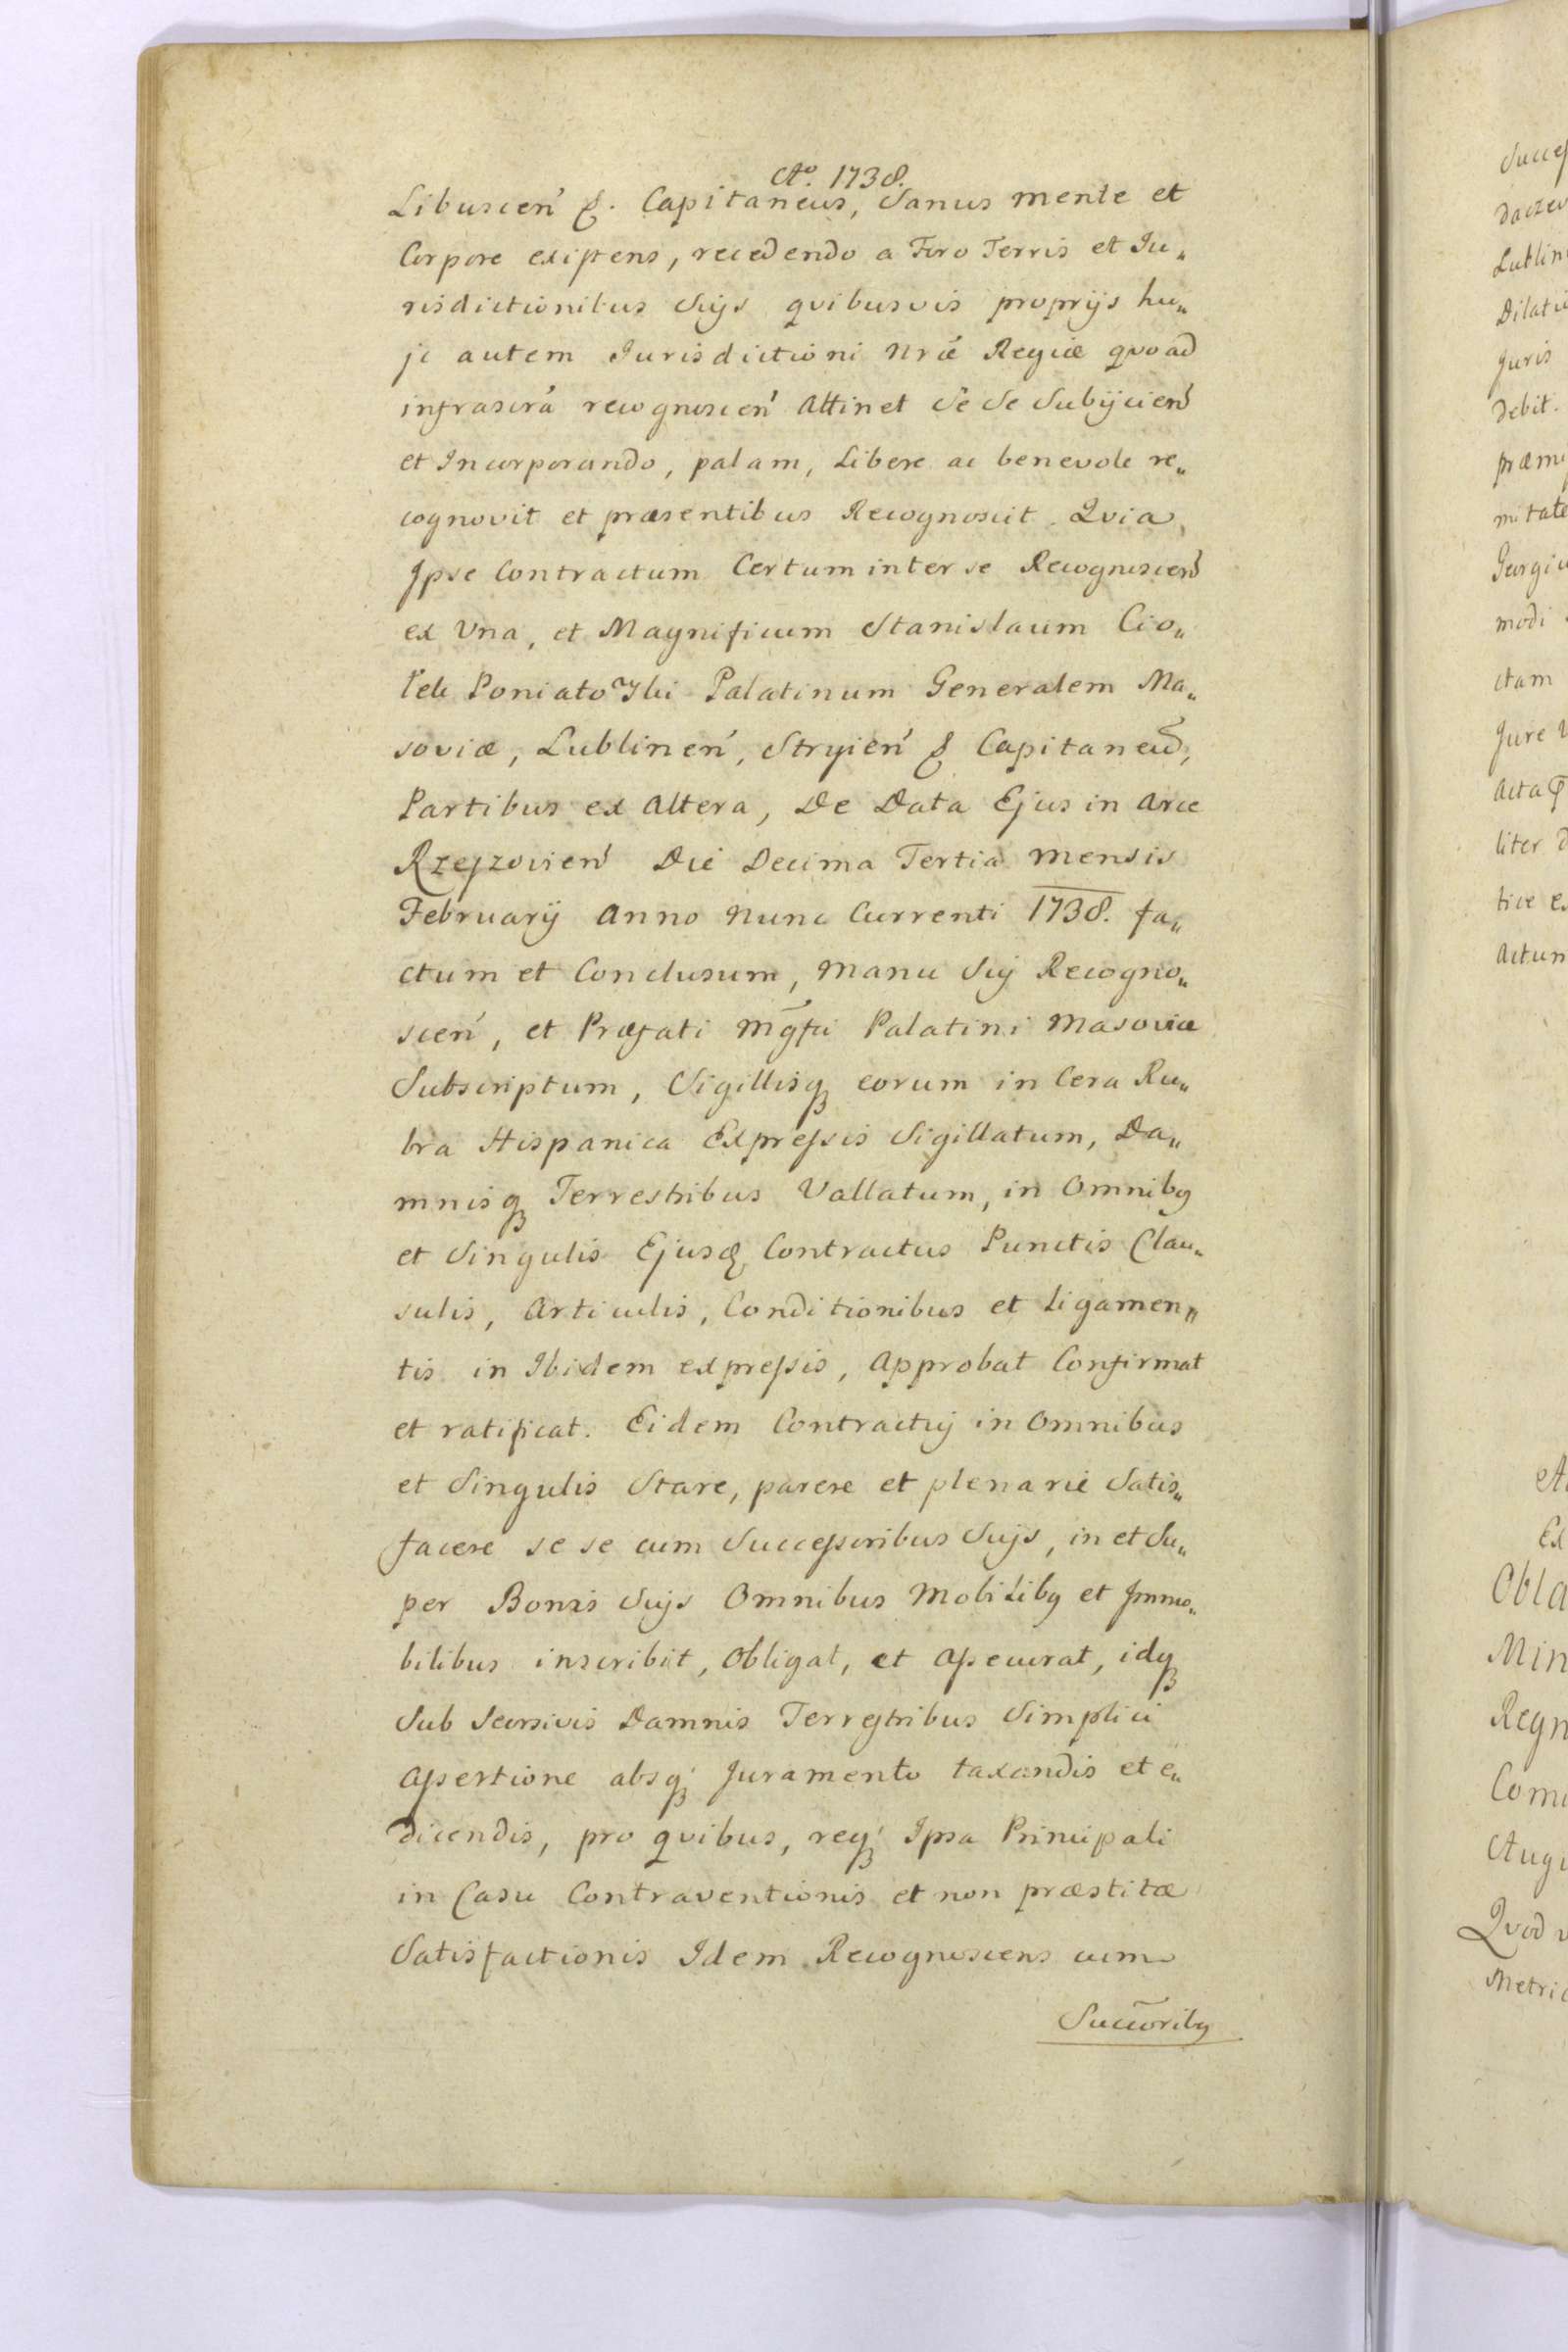 Ao. 1738.
Libuscen̄ &. Capitaneus, Sanus mente et
Corpore existens, recedendo a Foro Terris et Ju„
risdictionibus Suys quibusvis proprijs hu„
jc autem Jurisdictioni Nræ Regiæ quoad
infrascrā recognoscen̄ Attinet Se Se Subijcien̄
et Incorporando, palam, Libere ac benevole re„
cognovit et præsentibus Recognoscit. Qvia,
Ipse Contractum Certum inter se Recognoscen̄
ex Una, et Magnificum Stanislaum Cio„
lek Poniatowski Palatinum Generalem Ma„
soviæ, Lublinen̄, Stryien̄ & Capitaneū,
Partibus ex Altera, De Data Ejus in Arce
Rzeszovien̄ Die Decima Tertia Mensis
Februarij Anno Nunc Currenti 1738. fa„
ctum et Conclusum, Manu Suj Recogno„
scen̄, et Præfati Mg̃fci Palatini Masoviæ
Subscriptum, Sigillisq eorum in Cera Ru„
bra Hispanica Expressis Sigillatum, Da„
mnisq Terrestribus Vallatum, in Omnibg
et Singulis Ejusd Contractus Punctis Clau„
sulis, Articulis, Conditionibus et Ligamen„
tis in Ibidem expressis, Approbat Confirmat
et ratificat. Eidem Contractuj in Omnibus
et Singulis Stare, parere et plenarie Satis„
facere se se cum Successoribus Suys, in et Su„
per Bonis Suys Omnibus Mobilibg et Immo„
bilibus inscribit, Obligat, et Assecurat, idq
Sub Seorsivis Damnis Terrestribus Simplici
Assertione absq Juramento taxandis et e„
dicendis, pro qvibus, req Ipsa Principali
in Casu Contraventionis et non præstitæ
Satisfactionis Idem Recognoscens cum
Succ̄oribg
Lublin
Dilati
Juris
debit.
modi
ctam
Jure
Acta
liter
Obla
Min
Regn
Com
Augu
Qvod
Metri